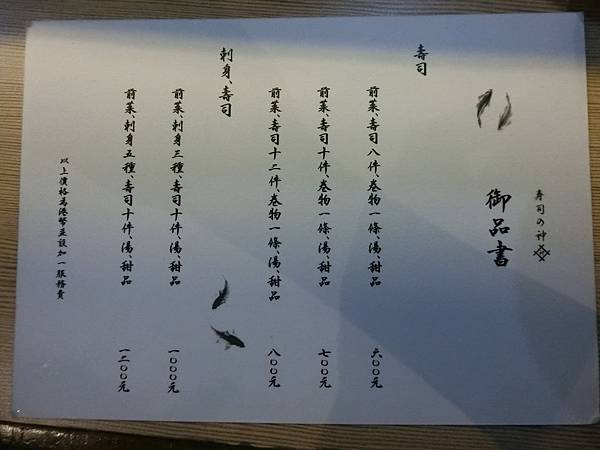 寿司の神
御品書
壽司
前菜、壽司八件、卷物一條、湯、甜品 六〇〇元
前菜、壽司十件、卷物一條、湯、甜品 七〇〇元
前菜、壽司十二件、卷物一條、湯、甜品 八〇〇元
刺身、壽司
前菜、刺身三種、壽司十件、湯、甜品 一〇〇〇元
前菜、刺身五種、壽司十件、湯、甜品 一二〇〇元
以上價格為港幣並設加一服務費